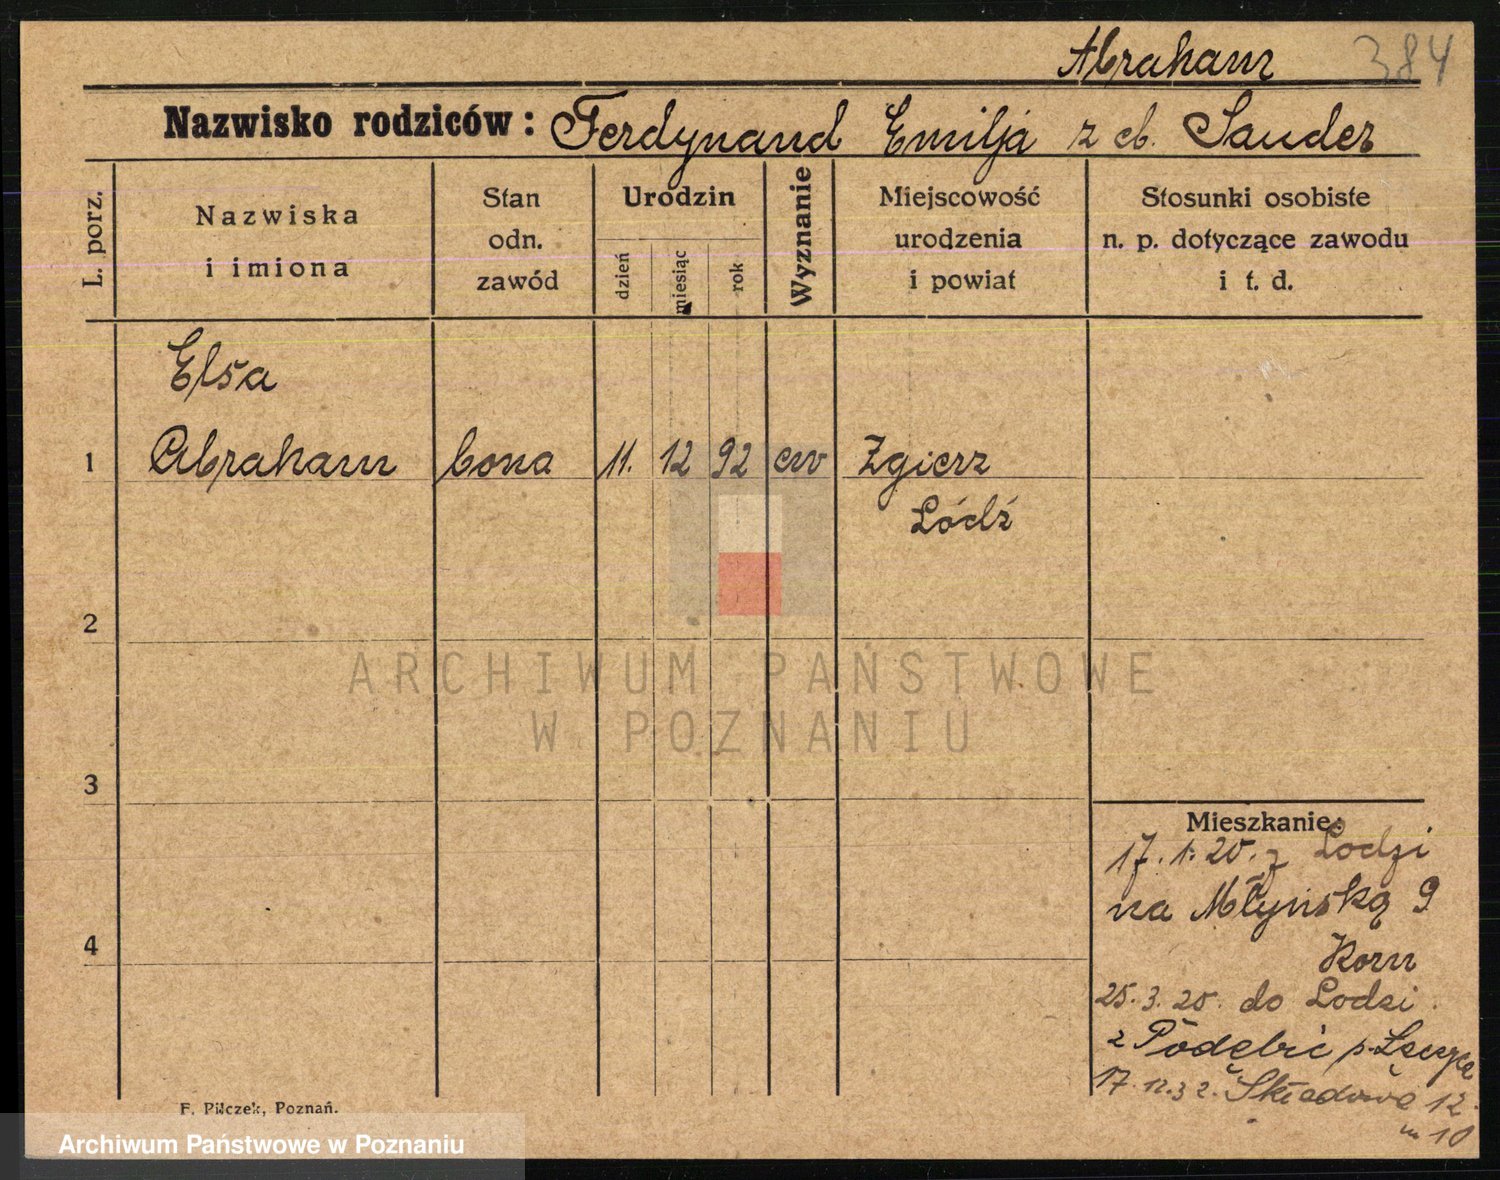 Abraham 384
Nazwisko rodziców: Ferdynand Emilja z Sauder
L. porz.
Nazwiska
i imiona
Stan
odn.
zawód
Urodzin
dzień
miesiąc
rok
Wyznanie
Miejscowość
urodzenia
i powiat
Stosunki osobiste
n. p. dotyczące zawodu
i t. d.
Elsa
1 Abraham bona 11. 12 92 ew Zgierz
Łódź
2
ARCHIWUM PAŃSTWOWE
W POZNANIU
3
Mieszkanie:
17.1.20. z Lodzi
na Młyńską 9
Korn
4
25.3.20. do Lodzi.
z p. Łęczyca
17.12.32. 12.
m 10
F. Pilczek, Poznań.
Archiwum Państwowe w Poznaniu